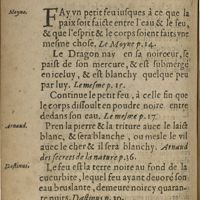 Moyne.
FAy vn petit feu iusques à ce que la
paix soit faicte entre l'eau & le feu,
& que l'esprit & le corps soient faits vne
mesme chose. Le Moyne p. 14.
Le Dragon nay en sa noirceur, se
paist de son mercure, & est submergé
en iceluy, & est blanchy quelque peu
par luy. Le mesme p. 15.
Continue le petit feu, à celle fin que
les corps dissoult en poudre noire, entre
dedans son eau. Le mesme p. 17.
Arnaud.
Pren la pierre & la triture auec le laict
blanc, & sera blanche, ou mesle le vif
auec le cher & il sera blanchy. Arnaud
des secrets de la nature p. 36.
Dastinus.
Le feu est la terre noire au fond de la
cucurbite, lequel feu ayant deuoré son
eau bruslante, demeure noircy quaran-
te nuits. Dastinus p. 30.